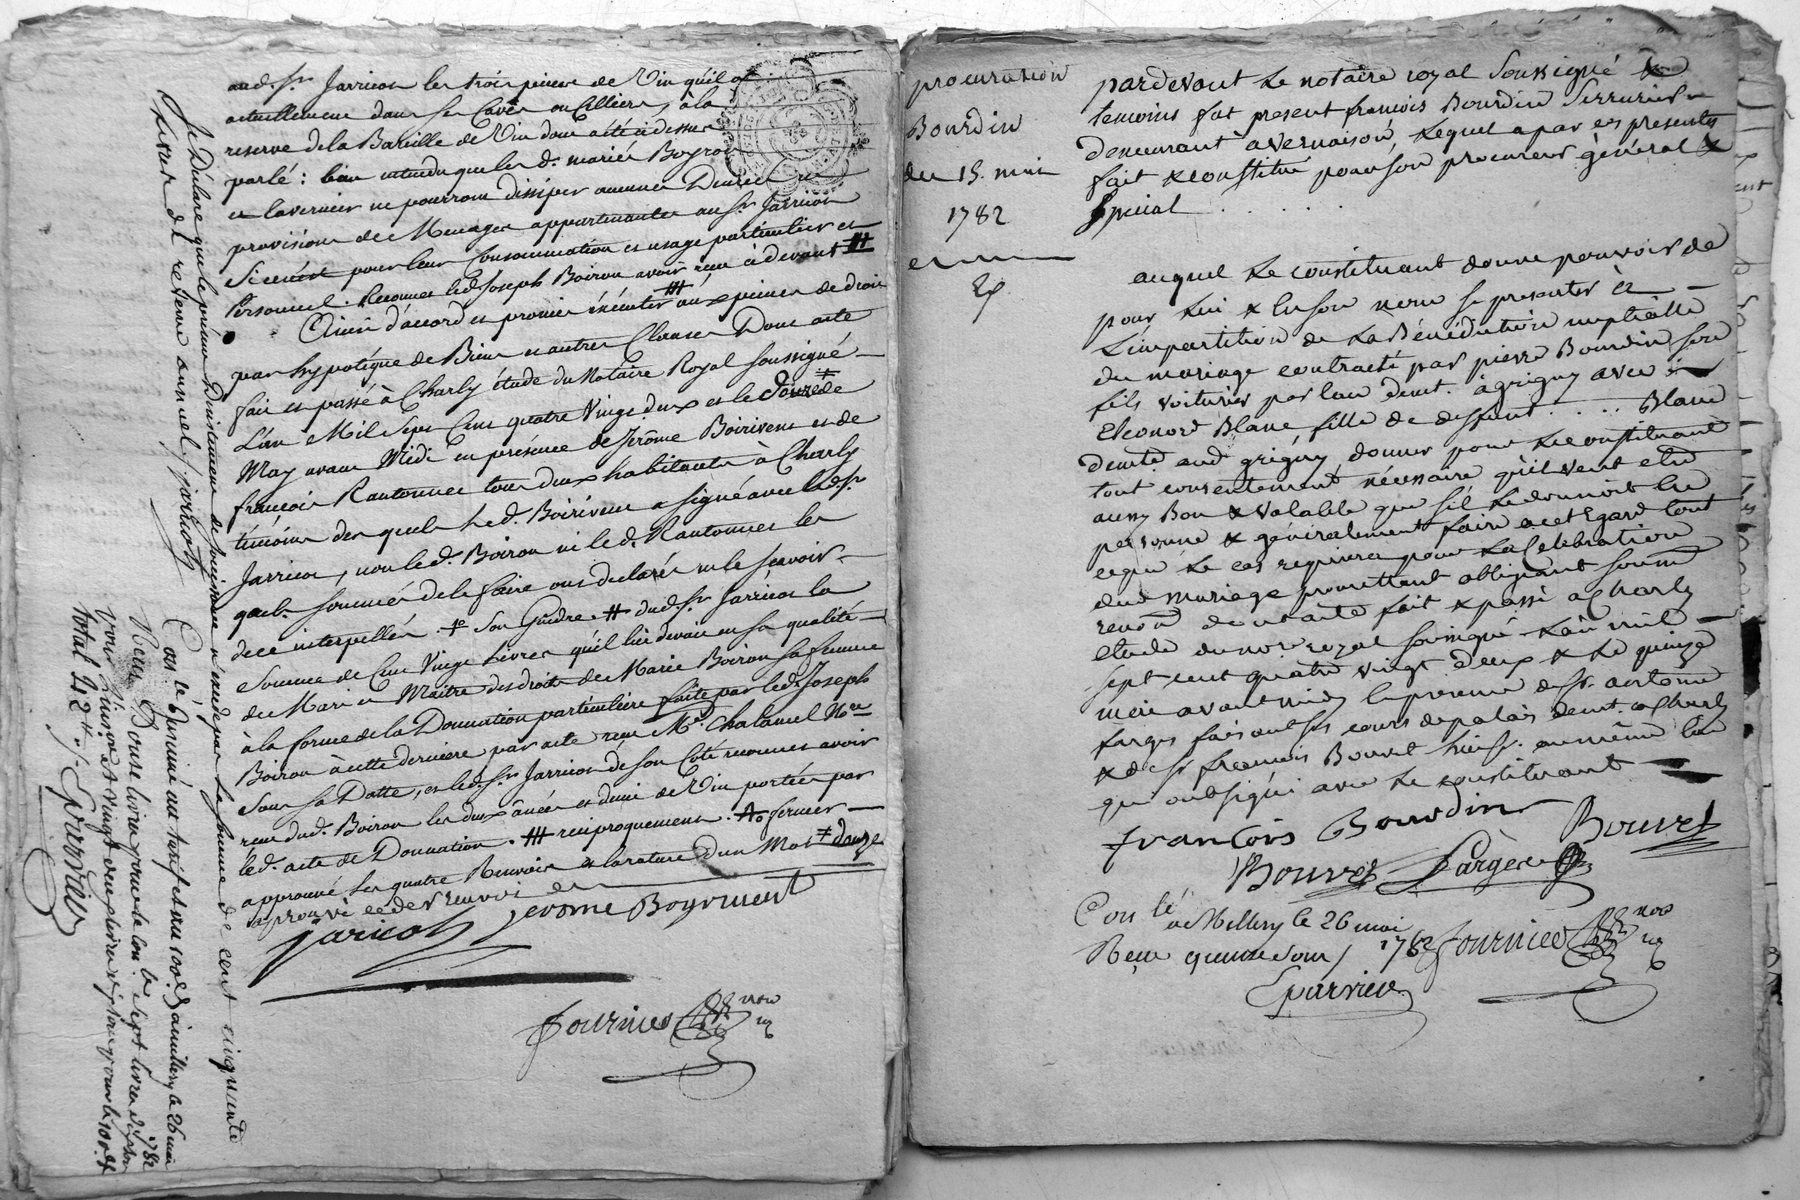 aud. Sr. Jarricot les trois pieces de Vin qu'il a
actuellement dans ses Caves ou Celliers, à la
reserve de la Bareille de Vin dont a été cidessus
parlé : bien entendu que les d. mariés Boyron
et laverniere ne pourront dissiper aucunes Denrées ni
provisions de Menages appartenantes au Sr. Jarricot
si ce n'est pour leur Consommation et usage particulier et
Personnel. Reconnoit led. Joseph Boiron avoir reçu cidevant #
Ainsi d'accord et promis éxécuter ### aux peines de droit
par hypotéque de Biens et autres Clauses Dont acte
fait et passé à Charly étude du Notaire Royal soussigné
L'an Mil Sept Cent quatre Vingt deux et le douze de
May avant Midi en présence de Jerôme Boirivent et de
françois Rantonnet tous deux habitants à Charly
témoins des quels led. Boirivent a signé avec led. Sr.
Jarricot, non led. Boiron ni led. Rantonnet les
quels sommés de le faire ont declarés ne le scavoir
de ce interpellés. Son Gendre # dud. Sr. Jarricot la
Somme de Cent Vingt Livres qu'il lui devoit en sa qualité
de Mari et Maitre des droits de Marie Boiron sa femme
à la forme de la Donnation particuliere faite par led. Joseph
Boiron à cette derniere par acte reçu Me. Chatanel Nre
sous sa Datte, et led. Sr. Jarricot de son Coté reconnoit avoir
reçu dud. Boiron les deux ânées et demi de Vin portées par
led. acte de Donnation. ### reciproquement. fermier
approuvé les quatre Renvois et la rature d'un Mot # douze
approuvé ce der renvoi
jaricot jerome Boyrivent
fournier nre
Rl
Je Déclare que le présent Desistement de jouissance n'excede pas La somme de cent cinquante
Livres de revenu annuel jarricot
Con lé, Insinué au tarif et au 100e. à millery le 26 mai 1782
Reçu Douze livres pour le con. Sept livres dix sols
pour l'insin. et vingt deux livres dix sols pour le 100e.
total 42 tt Eparvier
procuration
Bourdin
du 15. mai
1782
pardevant Le notaire royal Soussigné &
temoins fut present françois Bourdin Serrurier
demeurant à vernaison, Lequel a par ces presentes
fait & constitué pour son procureur général &
Spécial . . . . .
auquel Le constituant donne pouvoir de
pour Lui & En son nom se presenter à
L'impartition de La Bénédiction nuptialle
du mariage contracté par pierre Bourdin son
fils voiturier par eau demt. à grigny avec
Eleonord Blanc fille de deffunt . . . . Blanc
demte aud grigny donner pour Le constituant
tout consentement nécessaire qu'il veut etre
aussy Bon & valable que s'il Le donnoit En
personne & généralement faire a cet Egard tout
ce que Le cas requierra pour La Celebration
dud mariage promettant obligeant soumt
renonc dont acte fait & passé a Charly
etude du nore royal soussigné L'an mil
sept cent quatre vingt deux & Le quinze
mai avant midy En presence de Sr. antoine
farges faisant ses cours de palais demt. a Charly
& de Sr françois Bouvet huissr. au même lieu
qui ont signé avec Le constituant
francois Bourdin Bouvet
Bouvet Fargès
Con lé
a Millery le 26 mai
Reçu quinze sous 1782 fournier nre
Eparvier Rl